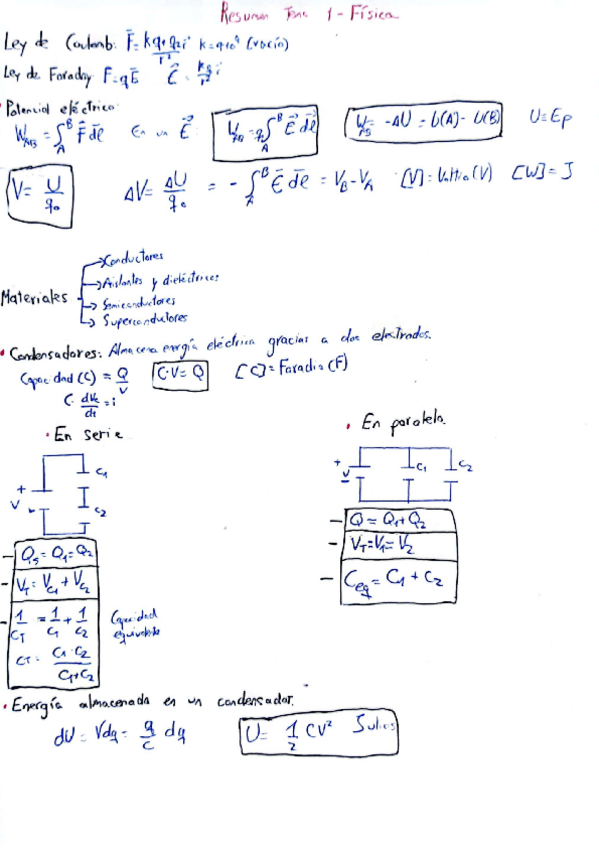 Resumen Tema 1 - Física
Ley de Coulomb: F̄ = k q₁·q₂/r² i k = 9·10⁹ (vacío)
Ley de Faraday F = qĒ E⃗ = kq/r² i
Potencial eléctrico:
W_AB = ∫_A^B F̄ dl̄ En un E⃗ W_AB = q∫_A^B E⃗ dl̄ W_AB = -ΔU = U(A) - U(B) U = Ep
V = U/q₀ ΔV = ΔU/q₀ = -∫_A^B Ē dl̄ = V_B - V_A [V] = Voltio (V) [W] = J
Materiales
→ Conductores
→ Aislantes y dieléctricos
→ Semiconductores
→ Superconductores
• Condensadores: Almacena energía eléctrica gracias a dos electrodos.
Capacidad (C) = Q/V C·V = Q [C] = Faradio (F)
C · dVc/dt = i
• En serie
• En paralelo.
C₁
C₂
+
V
-
+
V
-
C₁
C₂
- Q_s = Q₁ = Q₂
- V_T = V_C1 + V_C2
- 1/C_T = 1/C₁ + 1/C₂ Capacidad equivalente
C_T = C₁·C₂/(C₁+C₂)
- Q = Q₁ + Q₂
- V_T = V₁ = V₂
- C_eq = C₁ + C₂
• Energía almacenada en un condensador.
dU = Vdq = q/C dq U = 1/2 CV² Julios